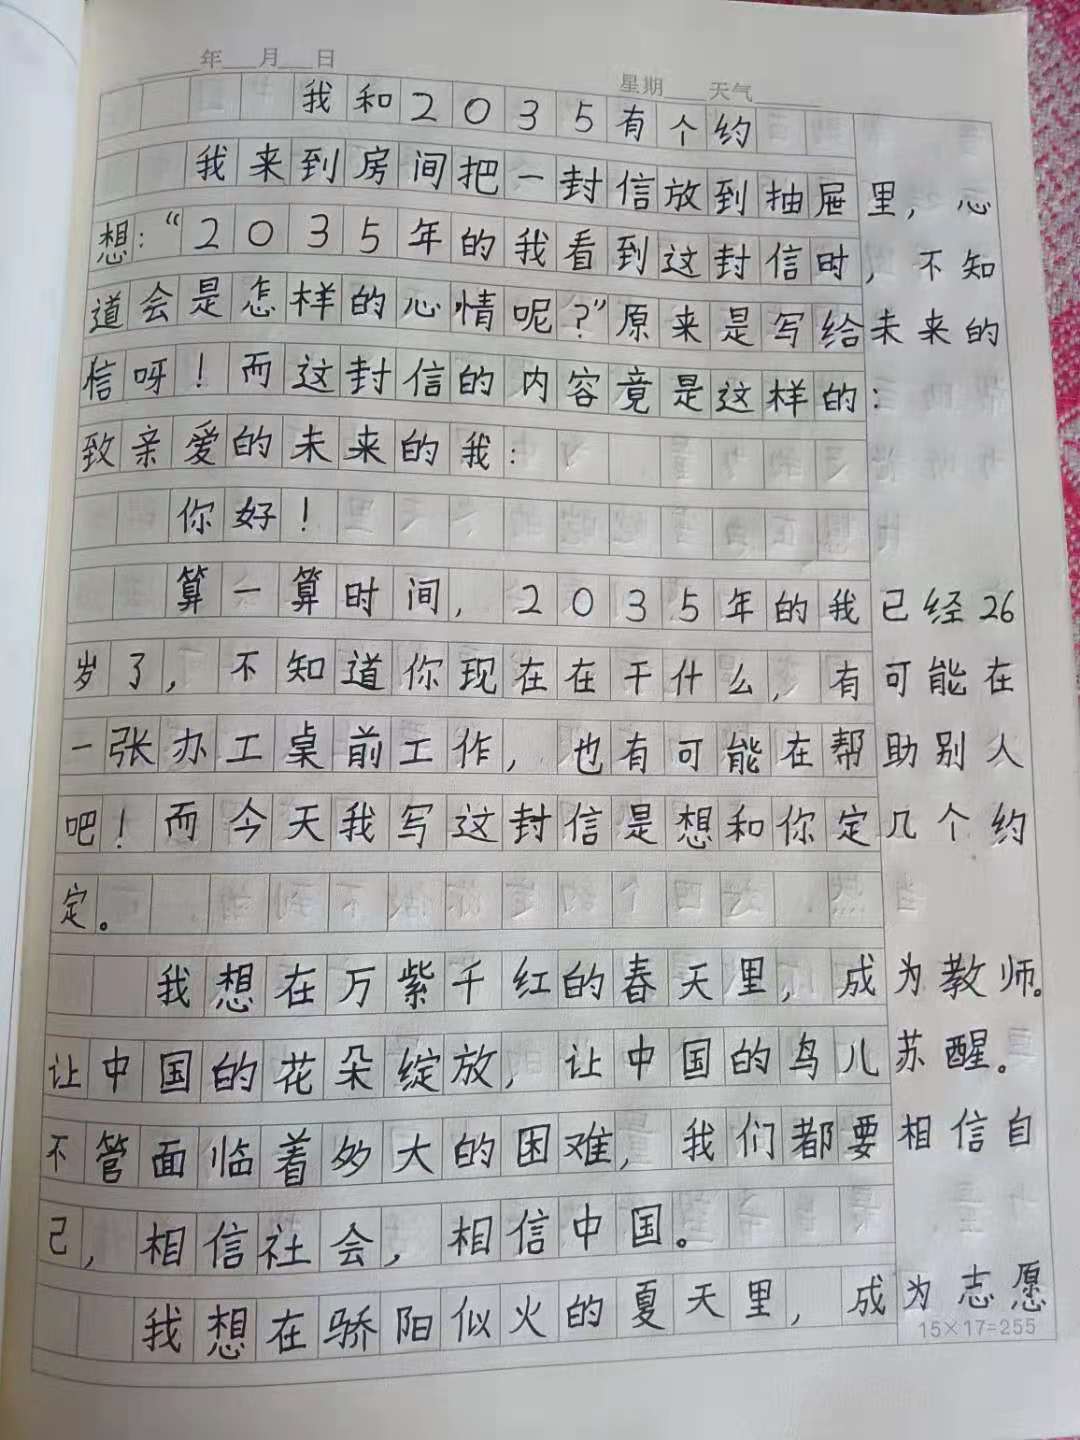 年 月 日
星期 天气
我和2035有个约
我来到房间把一封信放到抽屉里，心
想：“2035年的我看到这封信时，不知
道会是怎样的心情呢？”原来是写给未来的
信呀！而这封信的内容竟是这样的：
致亲爱的未来的我：
你好！
算一算时间，2035年的我已经26
岁了，不知道你现在在干什么，有可能在
一张办工桌前工作，也有可能在帮助别人
吧！而今天我写这封信是想和你定几个约
定。
我想在万紫千红的春天里，成为教师。
让中国的花朵绽放，让中国的鸟儿苏醒。
不管面临着多大的困难，我们都要相信自
己，相信社会，相信中国。
我想在骄阳似火的夏天里，成为志愿
15×17=255